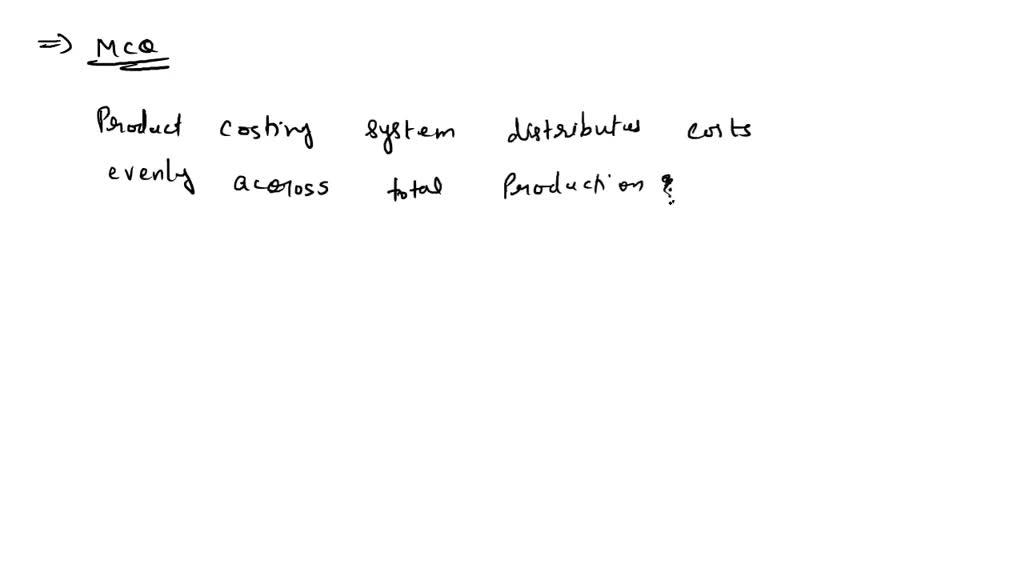 ⇒ MCQ
Product costing system distributes costs
evenly across total Production ?